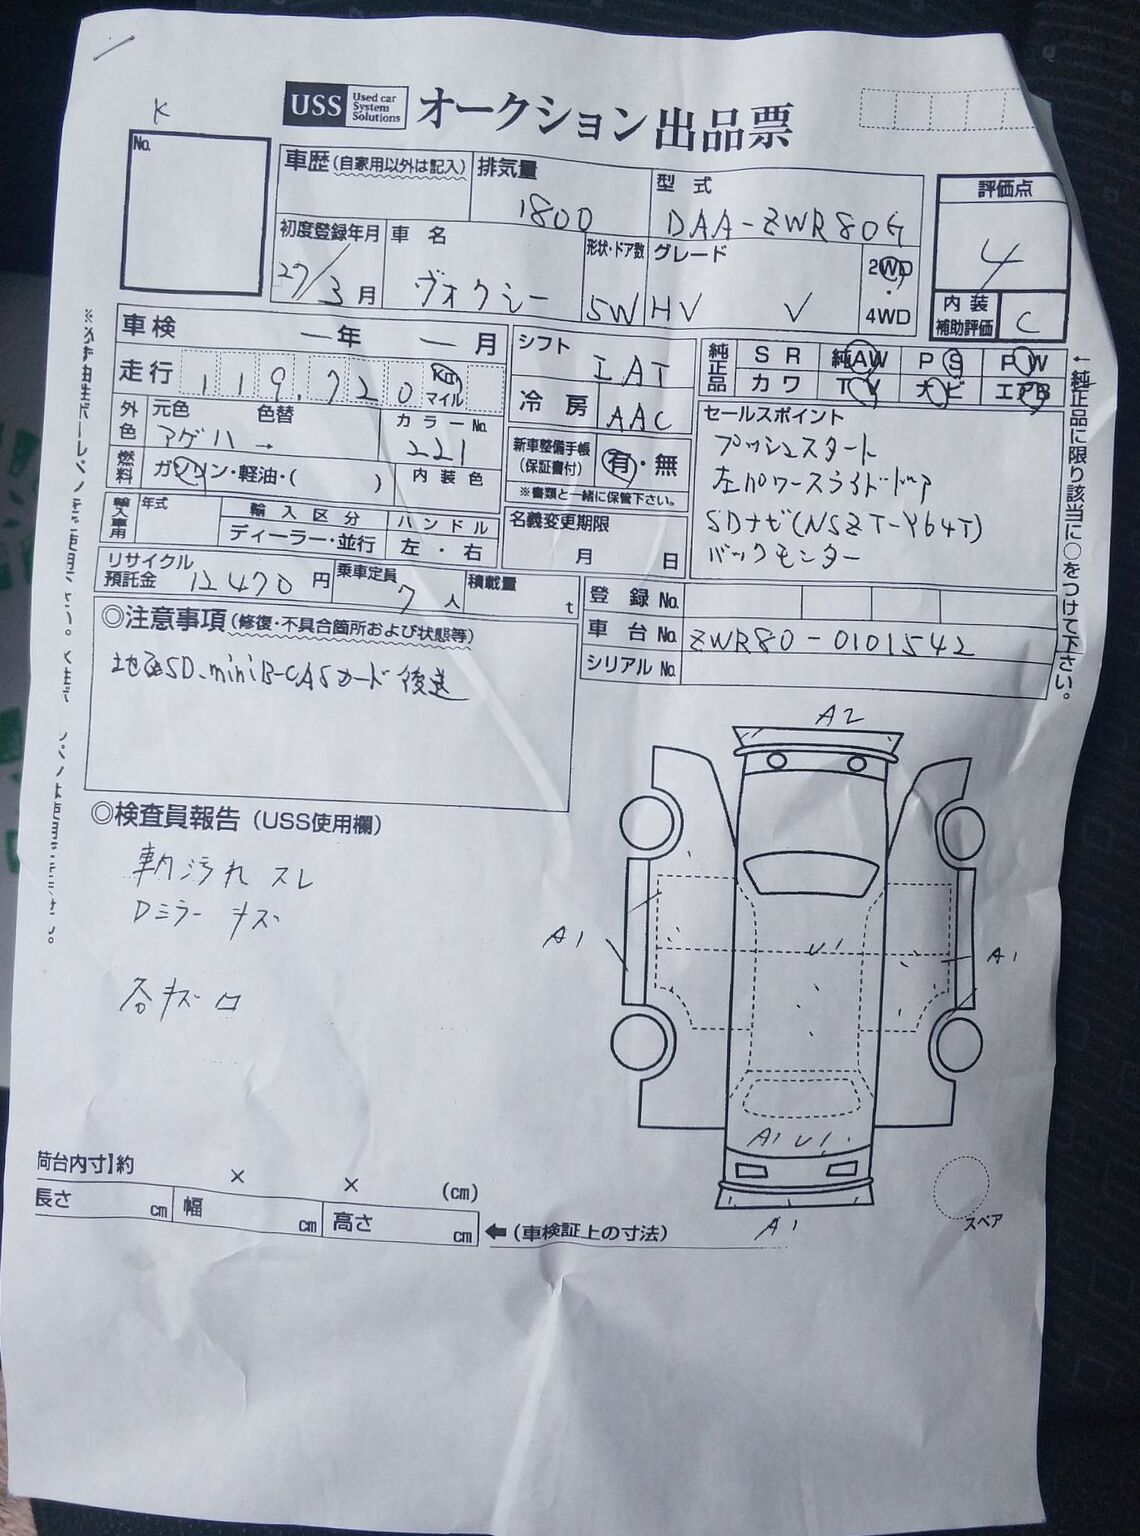 K
USS Used car System Solutions オークション出品票
No.
車歴(自家用以外は記入) 排気量 1800
型式 DAA-ZWR80G
評価点 4
初度登録年月 27/3月
車名 ヴォクシー
形状・ドア数 5W
グレード HV V
2WD・4WD
内装補助評価 C
車検 ー年 ー月
シフト IAT
純正品 SR 純AW PS PW
カワ TV 大ビ エアB
走行 119,720 Km マイル
冷房 AAC
外色 元色 アゲハ→ 色替
カラーNo. 221
セールスポイント
プッシュスタート
左パワースライドドア
SDナビ(NSZT-Y64T)
バックモニター
新車整備手帳(保証書付) 有・無
※書類と一緒に保管下さい。
燃料 ガソリン・軽油・( )
内装色
輸入車用 年式 輸入区分 ディーラー・並行
ハンドル 左・右
名義変更期限 月 日
リサイクル預託金 12470円
乗車定員 7人
積載量 t
登録No.
車台No. ZWR80-0101542
シリアルNo.
◎注意事項(修復・不具合箇所および状態等)
地図SD、miniB-CASカード後送
←純正品に限り該当に○をつけて下さい。
◎検査員報告(USS使用欄)
車内汚れ スレ
Dミラー キズ
各キズ ロ
A2
A1
U1
A1
A1 U1
A1
スペア
荷台内寸】約 × × (cm)
長さ cm 幅 cm 高さ cm ←(車検証上の寸法)